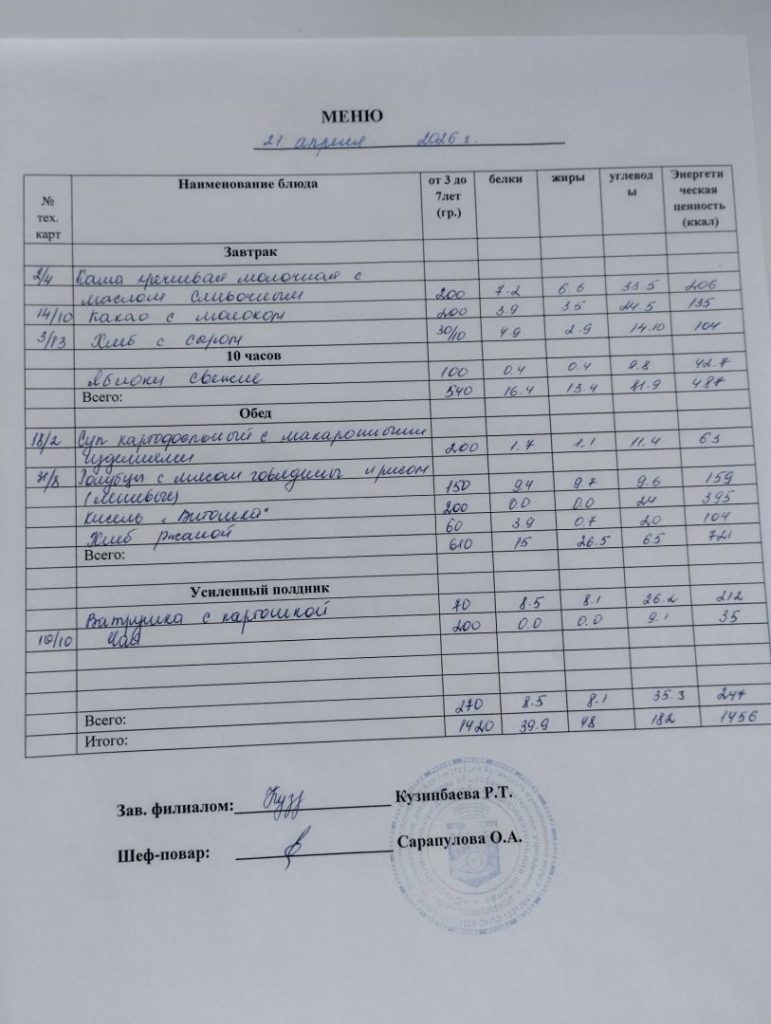 МЕНЮ
21 апреля 2026 г.
№ тех. карт Наименование блюда от 3 до 7лет (гр.) белки жиры углеводы Энергетическая ценность (ккал)
Завтрак
2/4 Каша гречневая молочная с
маслом сливочным 200 7.2 6.6 33.5 206
14/10 Какао с молоком 200 3.9 3.5 24.5 135
3/13 Хлеб с сыром 30/10 4.9 2.9 14.10 104
10 часов
Яблоки свежие 100 0.4 0.4 9.8 42.7
Всего: 540 16.4 13.4 81.9 487
Обед
18/2 Суп картофельный с макаронными
изделиями 200 1.7 1.1 11.4 63
Голубцы с мясом говядины и рисом
(ленивые) 150 9.4 9.7 9.6 159
Кисель "Витошка" 200 0.0 0.0 24 395
Хлеб ржаной 60 3.9 0.7 20 104
Всего: 610 15 26.5 65 721
Усиленный полдник
Ватрушка с картошкой 70 8.5 8.1 26.2 212
10/10 Чай 200 0.0 0.0 9.1 35
Всего: 270 8.5 8.1 35.3 247
Итого: 1420 39.9 48 182 1456
Зав. филиалом: Кузинбаева Р.Т.
Шеф-повар: Сарапулова О.А.